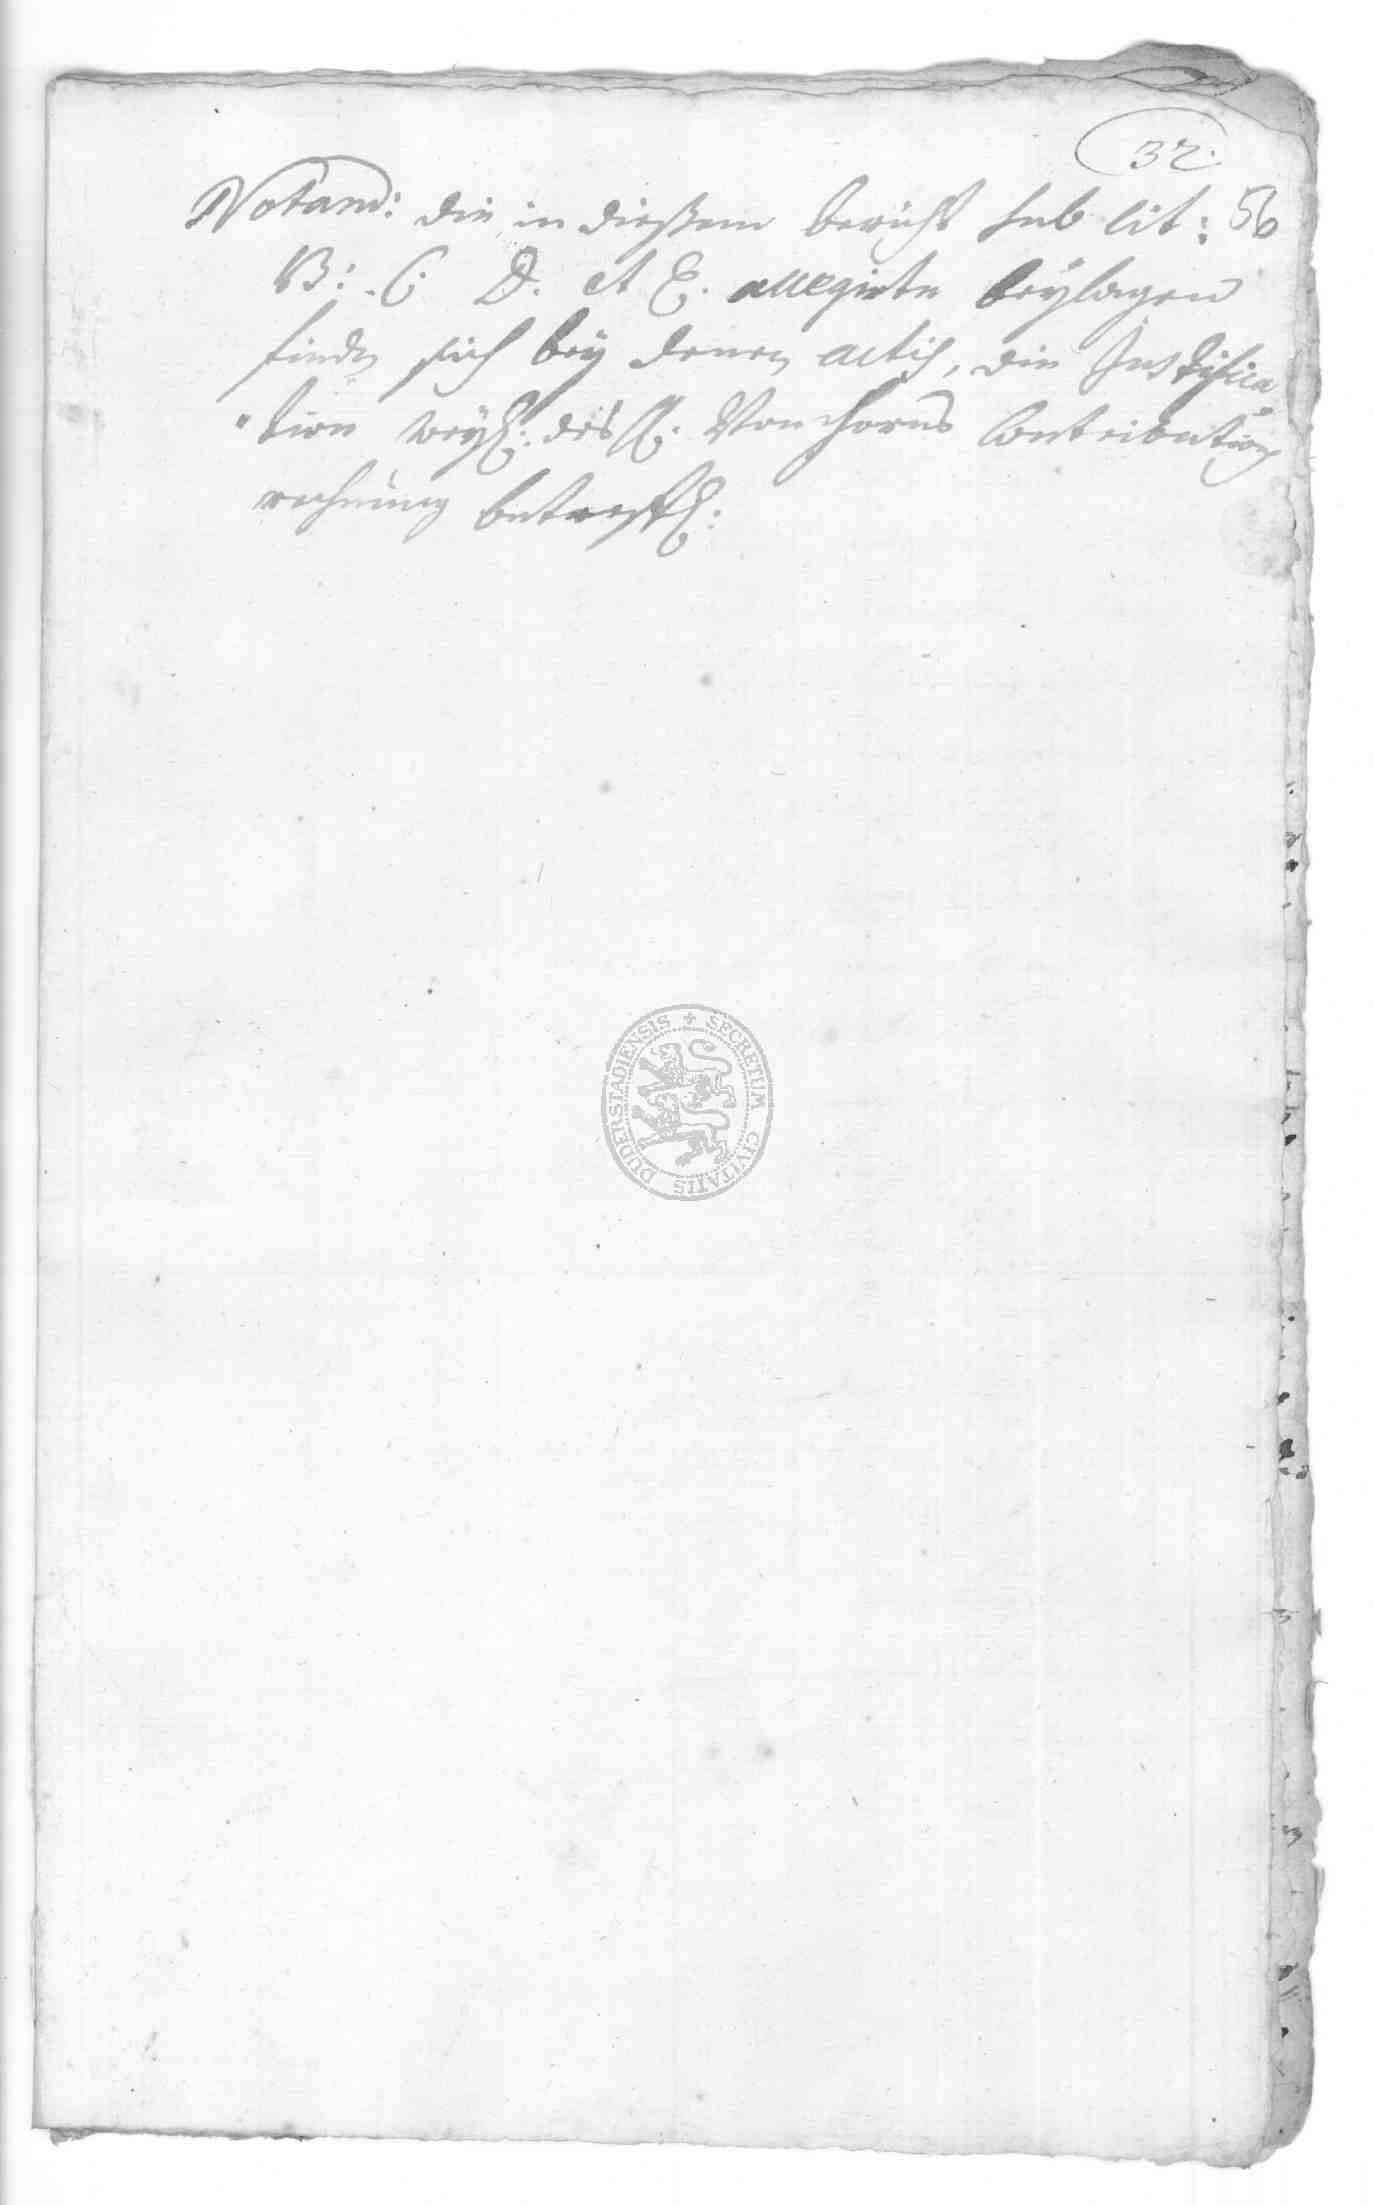 32.
56
Notand: die in dießem bericht sub lit:
B: C. D. et E. allegirte beÿlagen
finden sich beÿ denen actis, die Justifica
"tion weÿl: des H. Von Horns Contribution
rechnung betreffl:
SECRETUM CIVITATIS DUDERSTADIENSIS